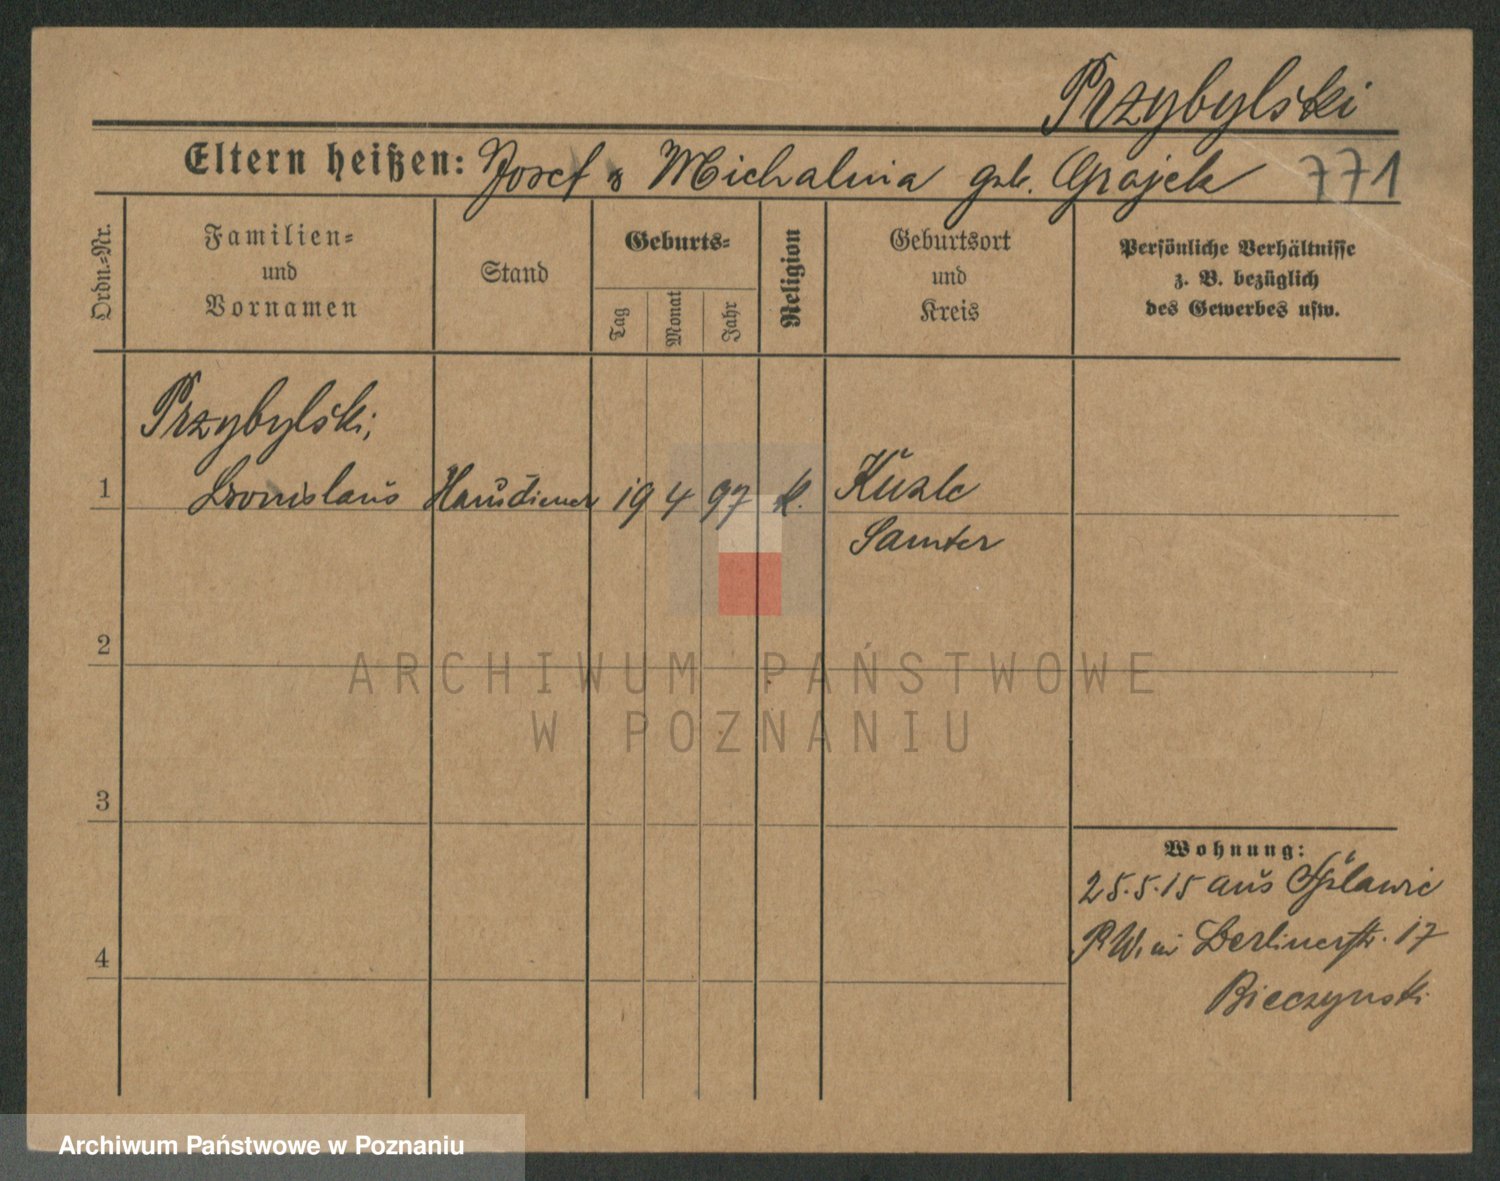 Przybylski
Eltern heißen: Josef & Michalina geb. Grajek 771
Ordn.-Nr.
Familien-
und
Vornamen
Stand
Geburts-
Tag
Monat
Jahr
Religion
Geburtsort
und
Kreis
Persönliche Verhältnisse
z. B. bezüglich
des Gewerbes usw.
Przybylski,
1 Bronislaus Hausdiener 19 4 97 k. Kuzle
Samter
2
3
4
Wohnung:
25.5.15 aus
Berlinerstr. 17
Bieczynski
ARCHIWUM PAŃSTWOWE
W POZNANIU
Archiwum Państwowe w Poznaniu